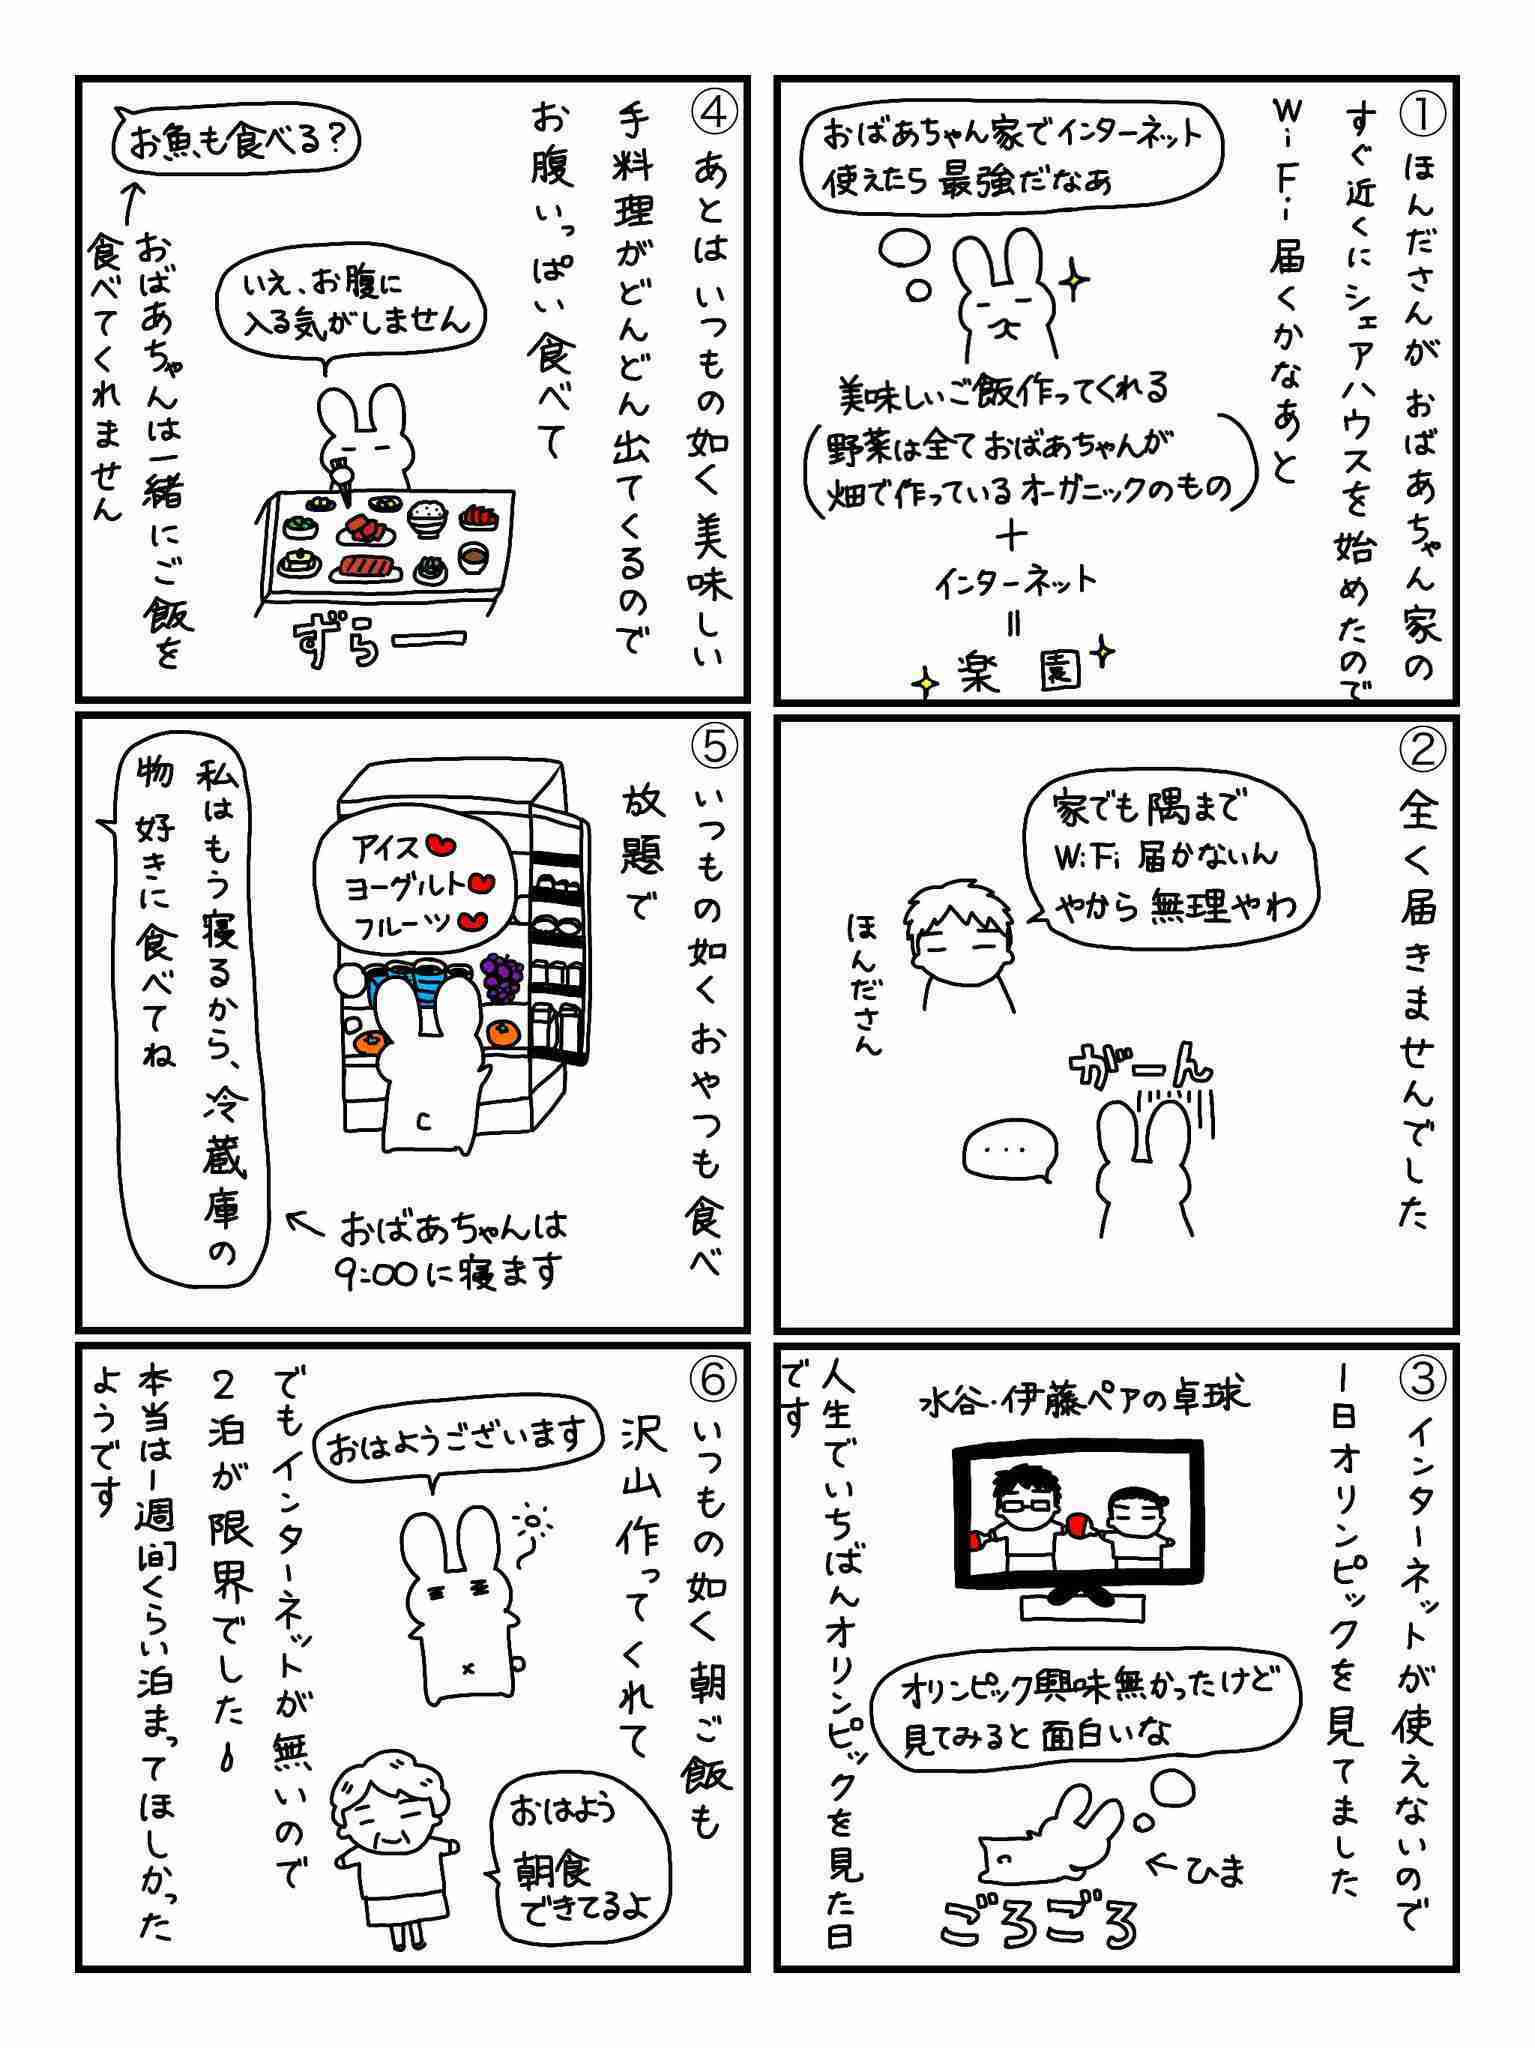 ①ほんださんがおばあちゃん家の
すぐ近くにシェアハウスを始めたので
WiFi届くかなあと
おばあちゃん家でインターネット
使えたら最強だなあ
美味しいご飯作ってくれる
(野菜は全ておばあちゃんが
畑で作っているオーガニックのもの)
+
インターネット
=
楽園
②全く届きませんでした
家でも隅まで
WiFi届かないん
やから無理やわ
ほんださん
がーん
...
③インターネットが使えないので
一日オリンピックを見てました
水谷・伊藤ペアの卓球
オリンピック興味無かったけど
見てみると面白いな
ひま
ごろごろ
人生でいちばんオリンピックを見た日
です
④あとはいつもの如く美味しい
手料理がどんどん出てくるので
お腹いっぱい食べて
お魚も食べる?
いえ、お腹に
入る気がしません
おばあちゃんは一緒にご飯を
食べてくれません
ずらー
⑤いつもの如くおやつも食べ
放題で
アイス
ヨーグルト
フルーツ
私はもう寝るから、冷蔵庫の
物好きに食べてね
おばあちゃんは
9:00に寝ます
⑥いつもの如く朝ご飯も
沢山作ってくれて
おはようございます
おはよう
朝食
できてるよ
でもインターネットが無いので
2泊が限界でした
本当は一週間くらい泊まってほしかった
ようです